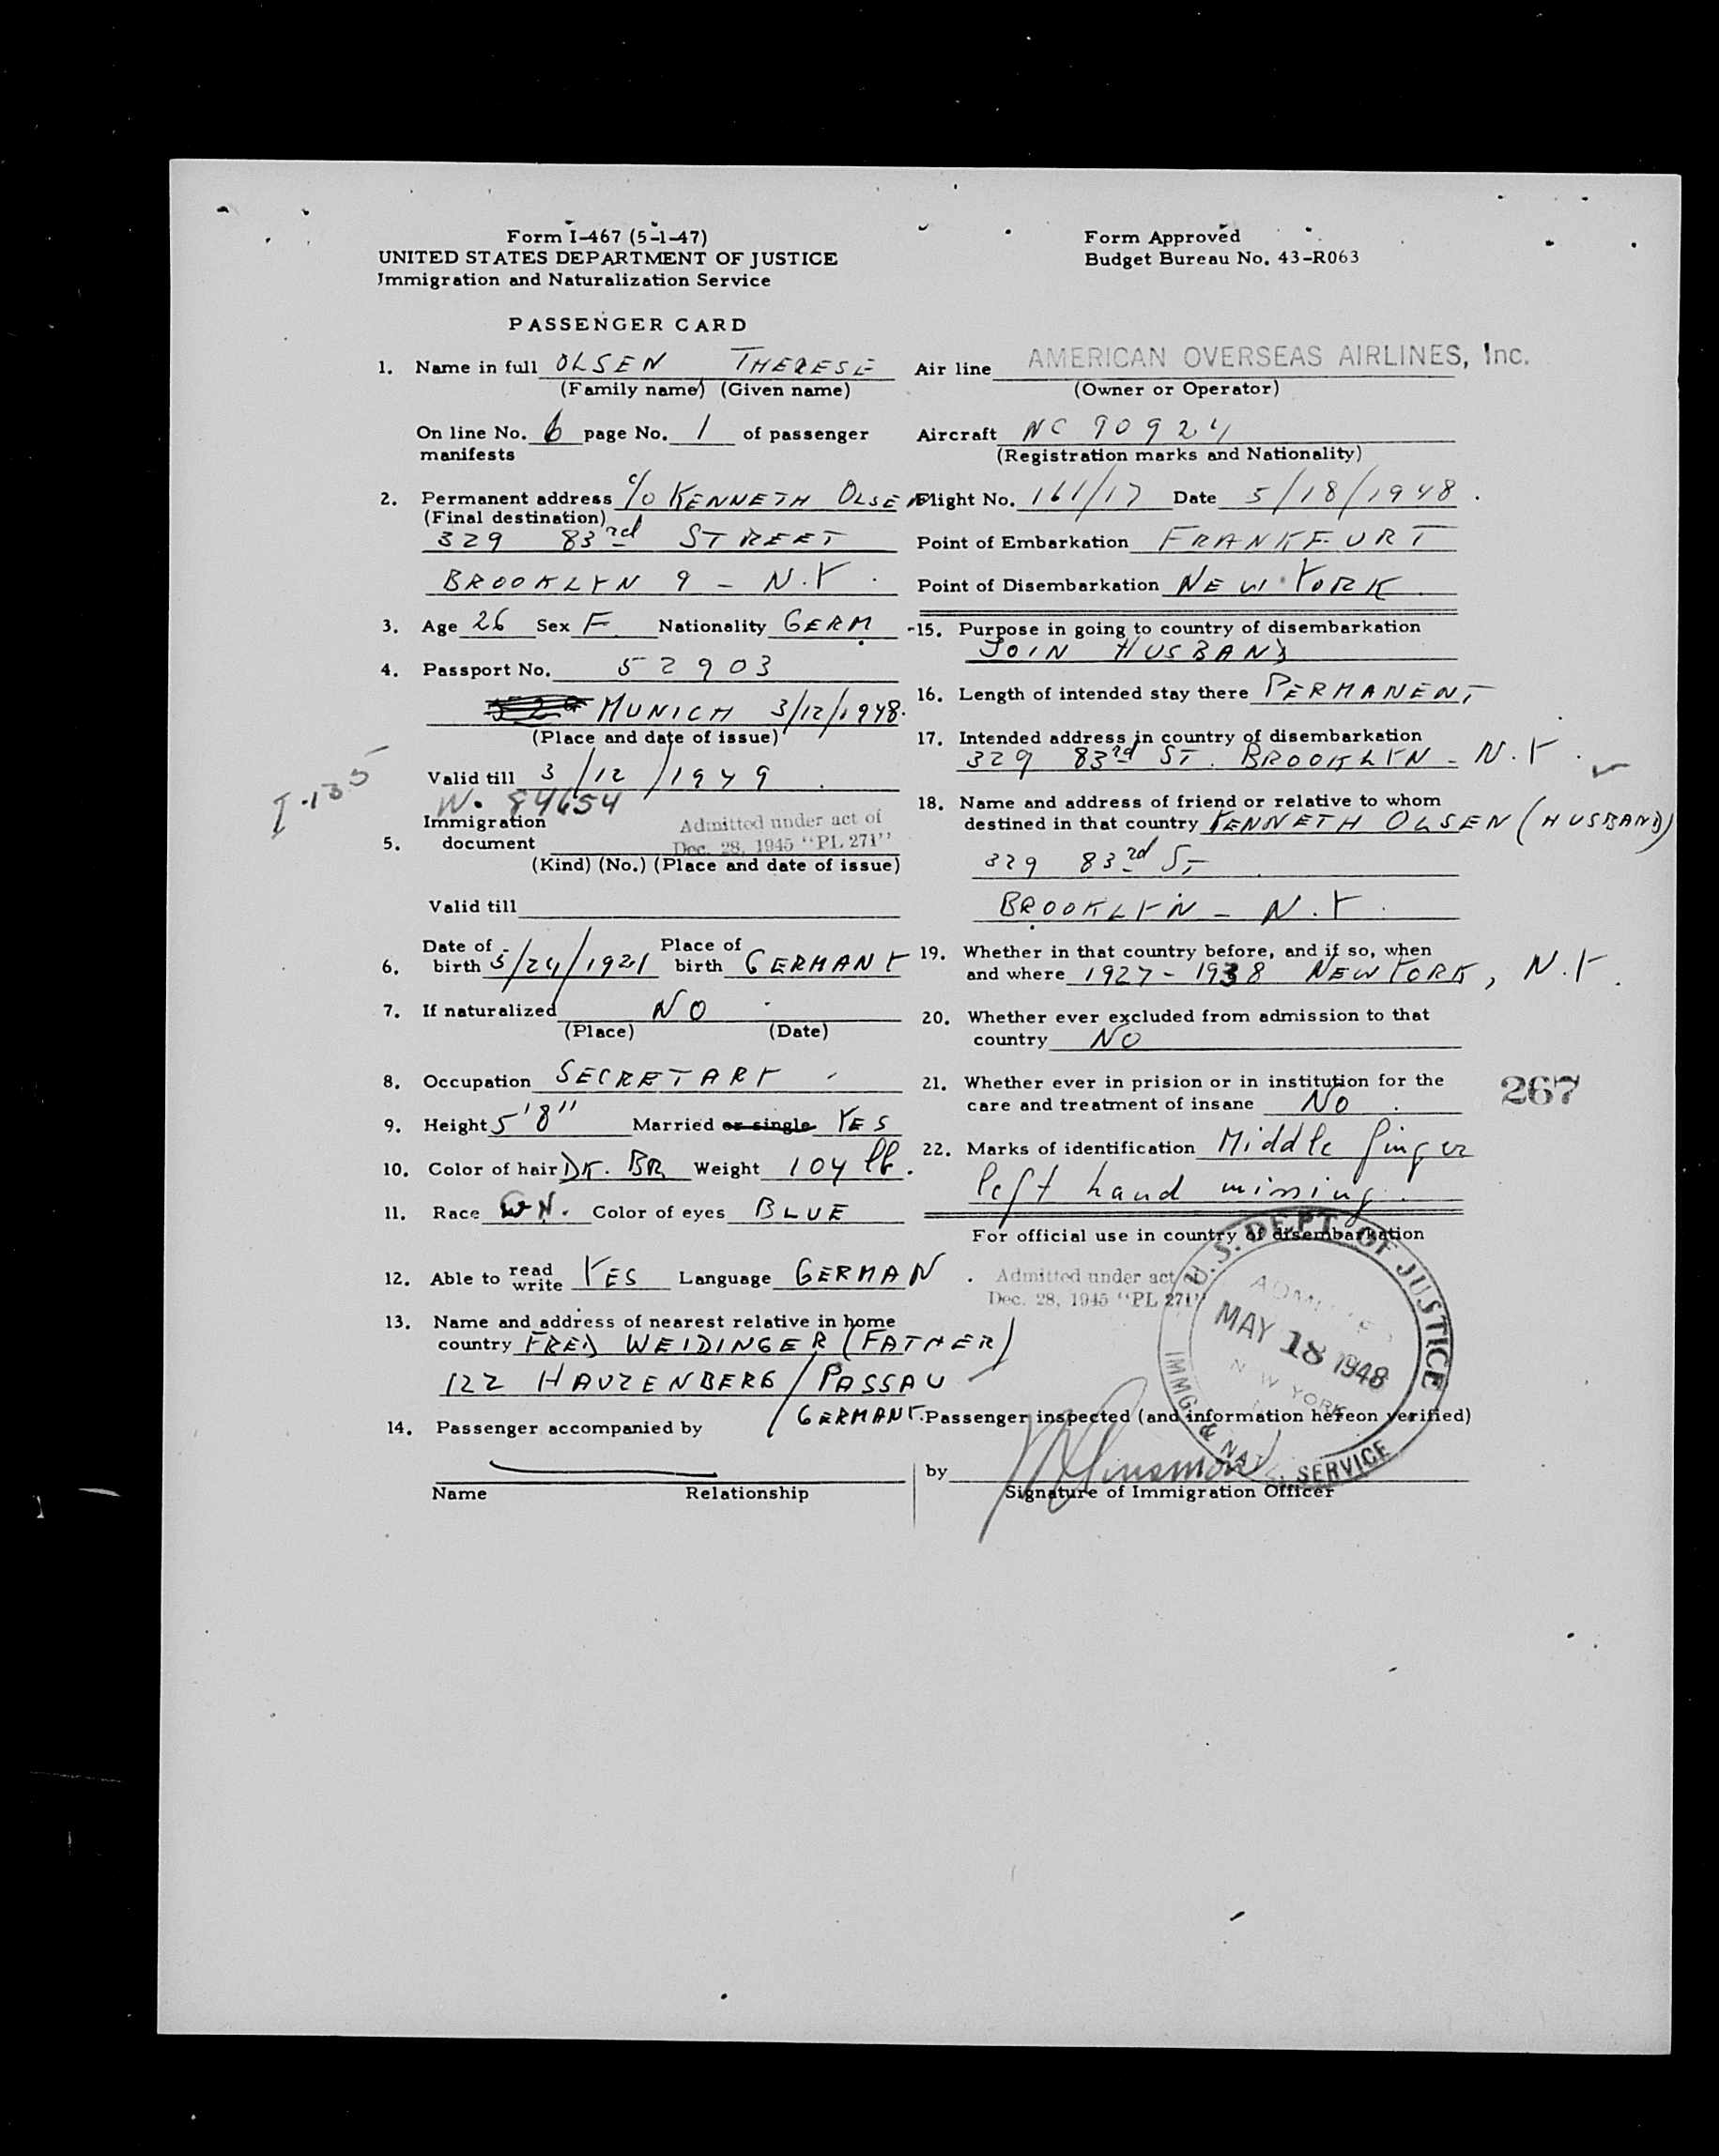 Form I-467 (5-1-47)
UNITED STATES DEPARTMENT OF JUSTICE
Immigration and Naturalization Service
Form Approved
Budget Bureau No. 43-R063
PASSENGER CARD
1. Name in full OLSEN THERESE
(Family name) (Given name)
On line No. 6 page No. 1 of passenger
manifests
2. Permanent address c/o KENNETH OLSEN
(Final destination)
329 83rd STREET
BROOKLYN 9 - N.Y.
3. Age 26 Sex F Nationality GERM
4. Passport No. 52903
MUNICH 3/12/1948.
(Place and date of issue)
Valid till 3/12/1949
W. 84654
Immigration
5. document
Admitted under act of
Dec. 28, 1945 "PL 271"
(Kind) (No.) (Place and date of issue)
Valid till
Date of Place of
6. birth 5/24/1921 birth GERMANY
7. If naturalized NO
(Place) (Date)
8. Occupation SECRETARY
9. Height 5'8" Married or single YES
10. Color of hair DK. BR Weight 104 lb.
11. Race Color of eyes BLUE
12. Able to read write YES Language GERMAN
13. Name and address of nearest relative in home
country FRED WEIDINGER (FATHER)
122 HAUZENBERG / PASSAU
GERMANY.
14. Passenger accompanied by
Name Relationship
Air line AMERICAN OVERSEAS AIRLINES, Inc.
(Owner or Operator)
Aircraft NC 90924
(Registration marks and Nationality)
Flight No. 161/17 Date 5/18/1948.
Point of Embarkation FRANKFURT
Point of Disembarkation NEW YORK
15. Purpose in going to country of disembarkation
JOIN HUSBAND
16. Length of intended stay there PERMANENT
17. Intended address in country of disembarkation
329 83rd ST. BROOKLYN - N.Y.
18. Name and address of friend or relative to whom
destined in that country KENNETH OLSEN (HUSBAND)
329 83rd ST
BROOKLYN - N.Y.
19. Whether in that country before, and if so, when
and where 1927 - 1938 NEW YORK, N.Y.
20. Whether ever excluded from admission to that
country NO
21. Whether ever in prision or in institution for the
care and treatment of insane NO
267
22. Marks of identification Middle finger
left hand missing.
For official use in country of disembarkation
Admitted under act
Dec. 28, 1945 "PL 271"
U.S. DEPT. OF JUSTICE
ADMITTED
MAY 18 1948
NEW YORK
IMMG. & NAT. SERVICE
Passenger inspected (and information hereon verified)
by
Signature of Immigration Officer